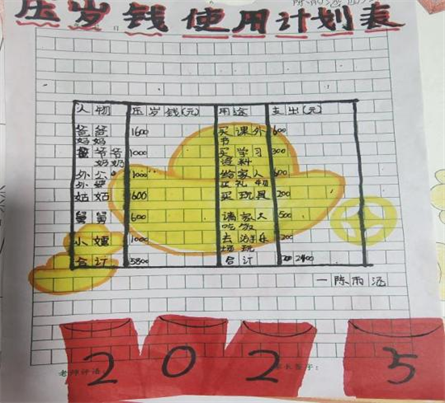 压岁钱使用计划表
人物 压岁钱(元) 用途 支出(元)
爸爸妈妈 1600 买课外书 600
爷爷奶奶 1000 买学习资料 300
外公外婆 1000 给家人买礼品 600
姑姑 600 买玩具 200
舅舅 600 请家人吃饭 500
小姨 1000 去游乐园玩 200
合计 5800 合计 2400
一陈雨涵
2025